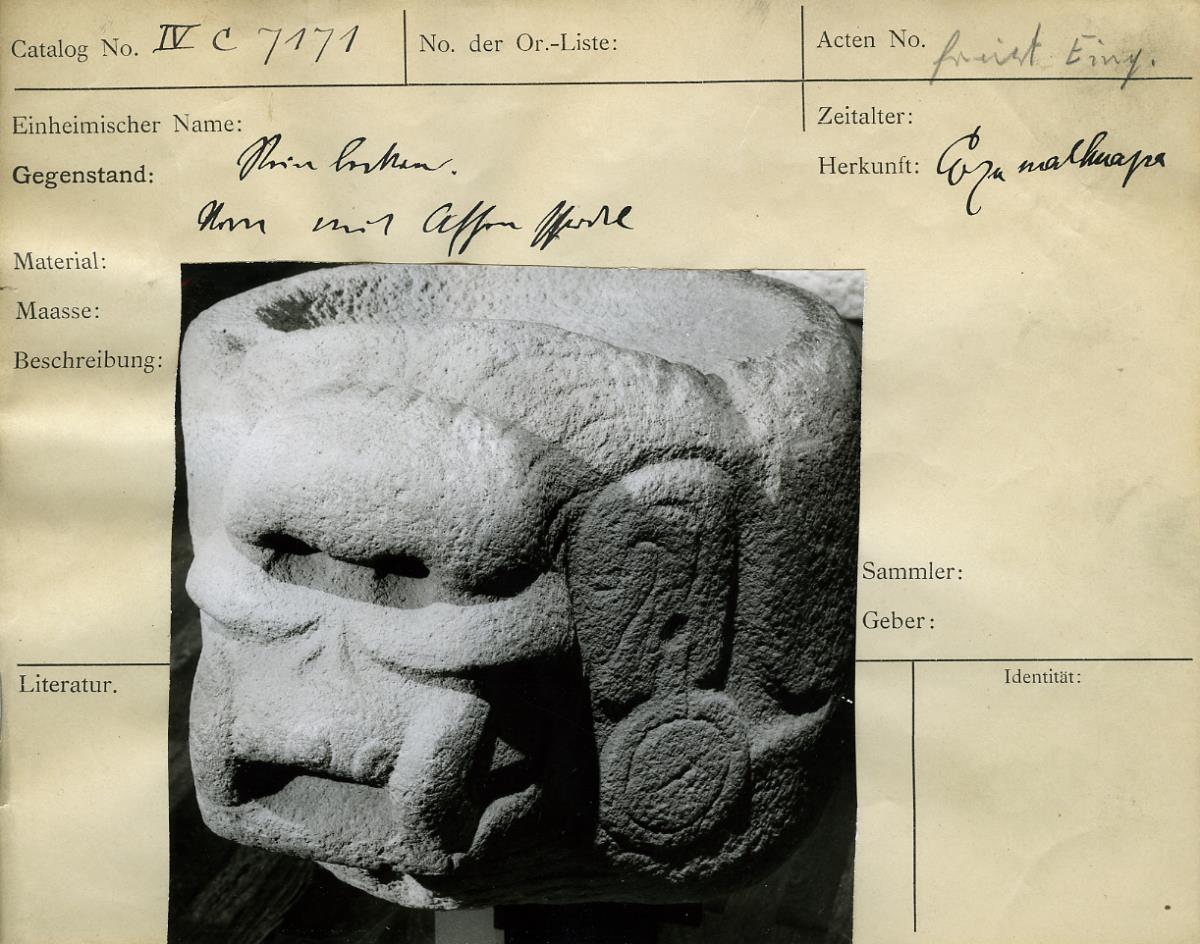 Catalog No. IV C 7171
No. der Or.-Liste:
Acten No. Eing.
Einheimischer Name:
Zeitalter:
Gegenstand: Steinbecken.
Herkunft: Cozumalhuapa
mit Affenschädel
Material:
Maasse:
Beschreibung:
Sammler:
Geber:
Literatur.
Identität: